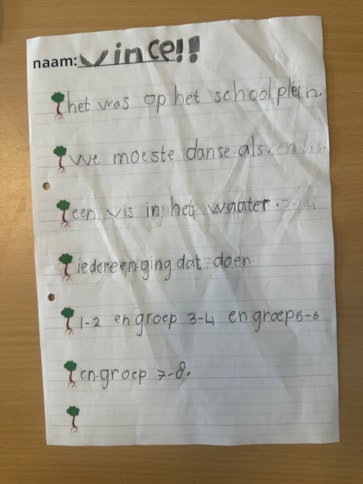 naam: Vince!!
het was op het schoolplein.
We moeste danse als.
een vis in het water.
iedereen ging dat doen.
1-2 en groep 3-4 en groep 5-6
en groep 7-8.